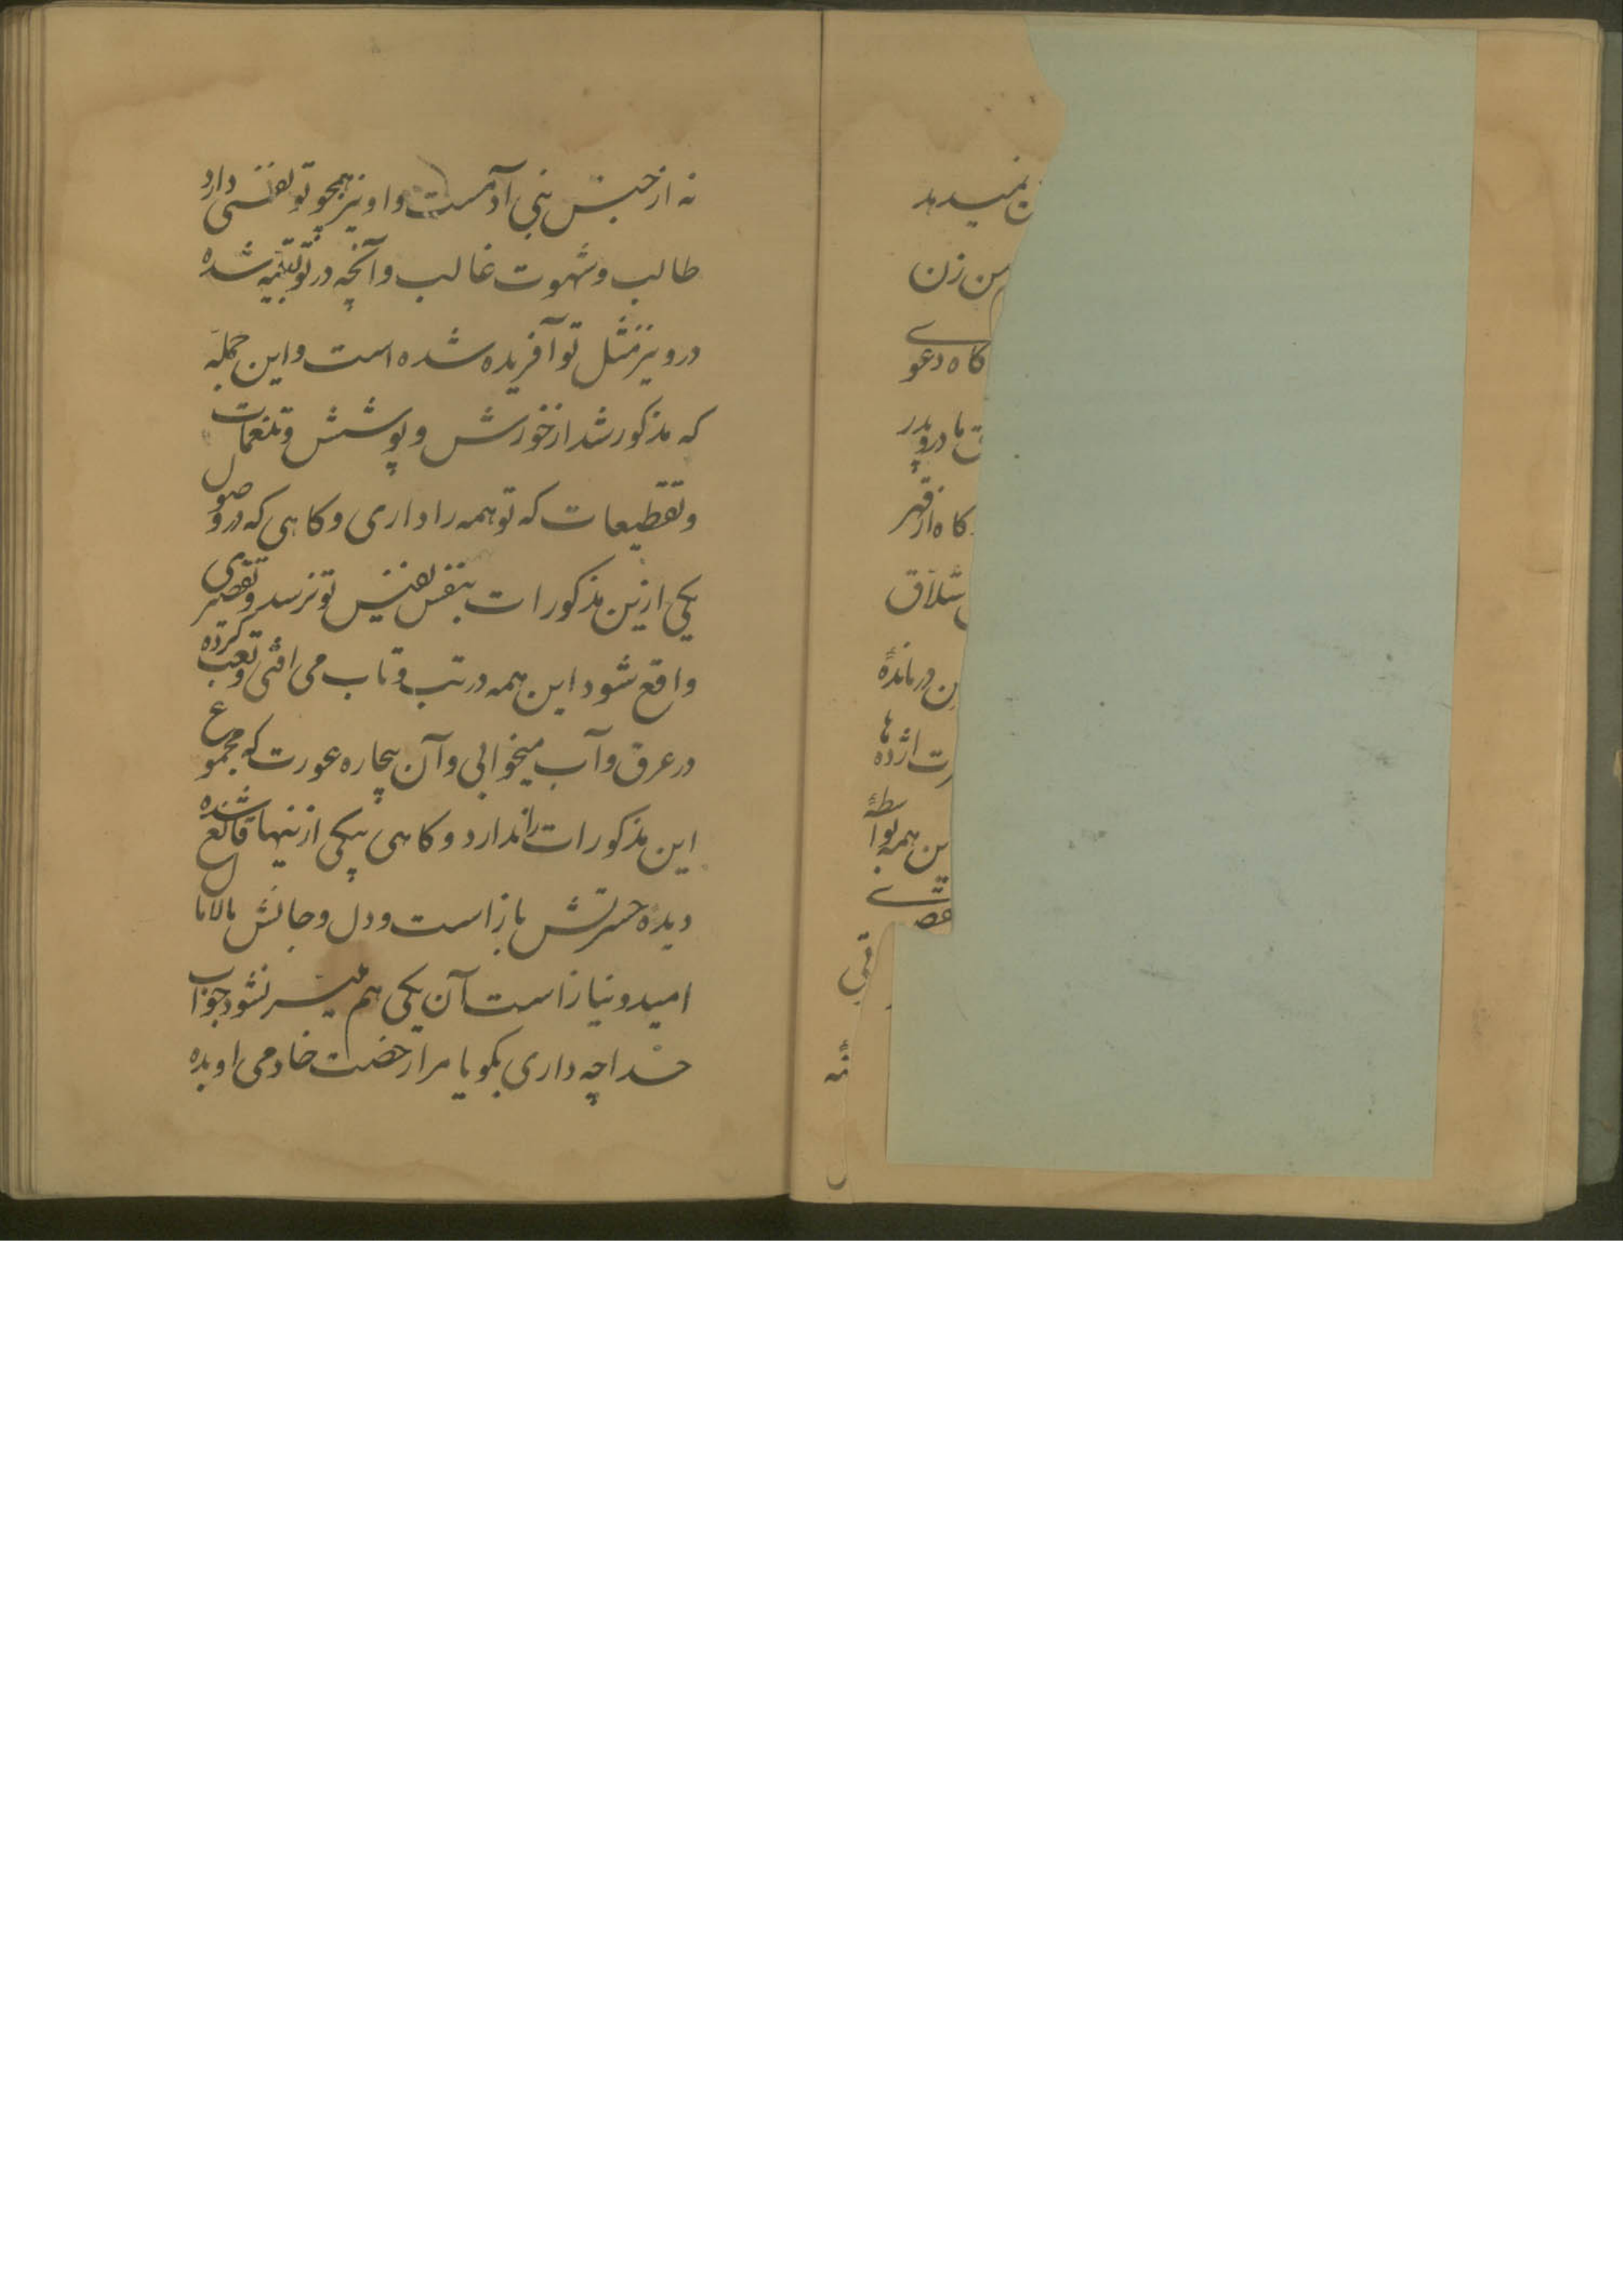 نمیدهد
زن
گاه دعوے
مادر و پدر
گاه از قهر
شلاق
درماندهٔ
اژدها
ین همه بواسطهٔ
نه از جنس بنی آدمست و او نیز همچو تو نفسی دارد
طالب و شهوت غالب و آنچه در تو تعبیه شده
درو نیز مثل تو آفریده شده است و این جمله
که مذکور شد از خورش و پوشش و تنعمات
و تقطیعات که تو همه را داری و گاهی که در وصول
یکی ازین مذکورات بنفس نفیس تو نرسد و تقصیری
واقع شود این همه در تب و تاب می افتی و تعب کرده
در عرق و آب میخوابی و آن بیچاره عورت که مجموع
این مذکورات را ندارد و گاهی بیکی ازینها قانع شده
دیدهٔ حسرتش باز است و دل و جانش مالامال
امید و نیاز است آن یکی هم میسر نشود جواب
خدا چه داری بگو یا مرا رخصت خادمی او بده